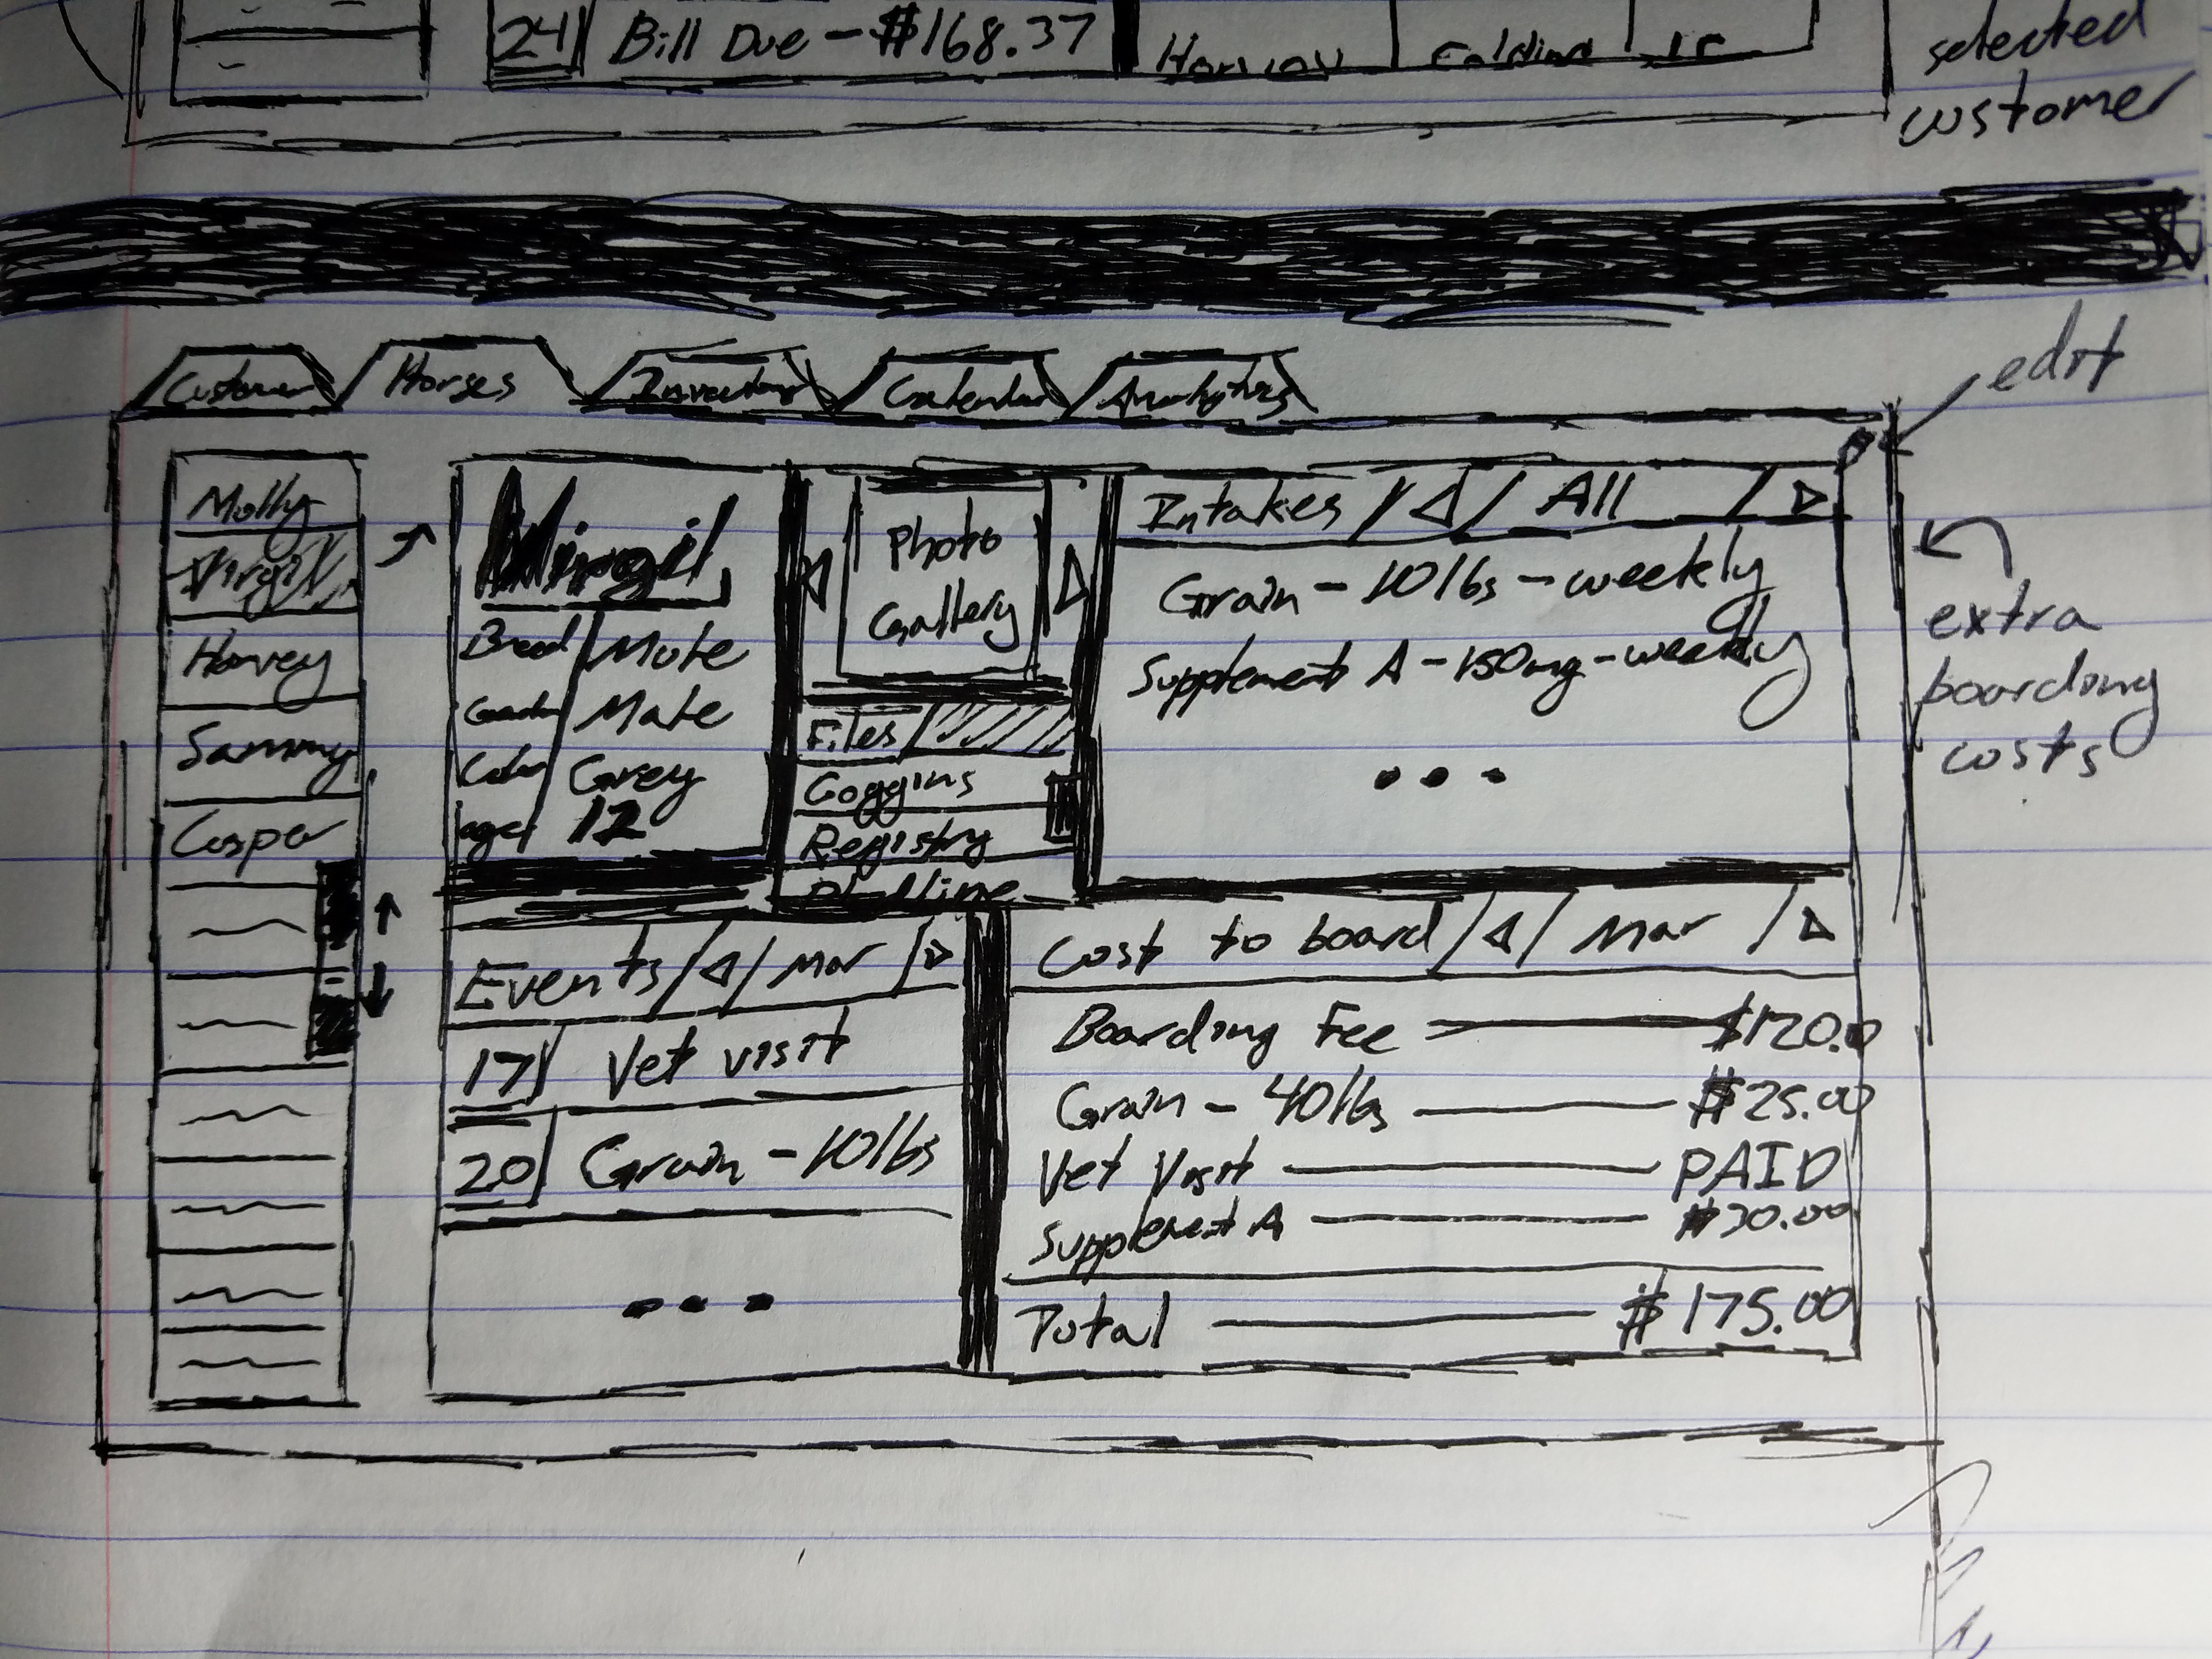 24 Bill Due - $168.37
selected
customer
Horses Inventory Calendar Analytics
edit
Molly
Virgil
Harvey
Sammy
Casper
Virgil
Breed Mute
Gender Male
Color Grey
age 12
Photo
Gallery
Files
Coggins
Registry
Intakes All
Grain - 10 lbs - weekly
Supplement A - 150mg - weekly
...
extra
boarding
costs
Events Mar
17 Vet visit
20 Grain - 10 lbs
...
Cost to board Mar
Boarding Fee $120.0
Grain - 40 lbs $25.00
Vet Visit PAID
Supplement A $30.00
Total $175.00